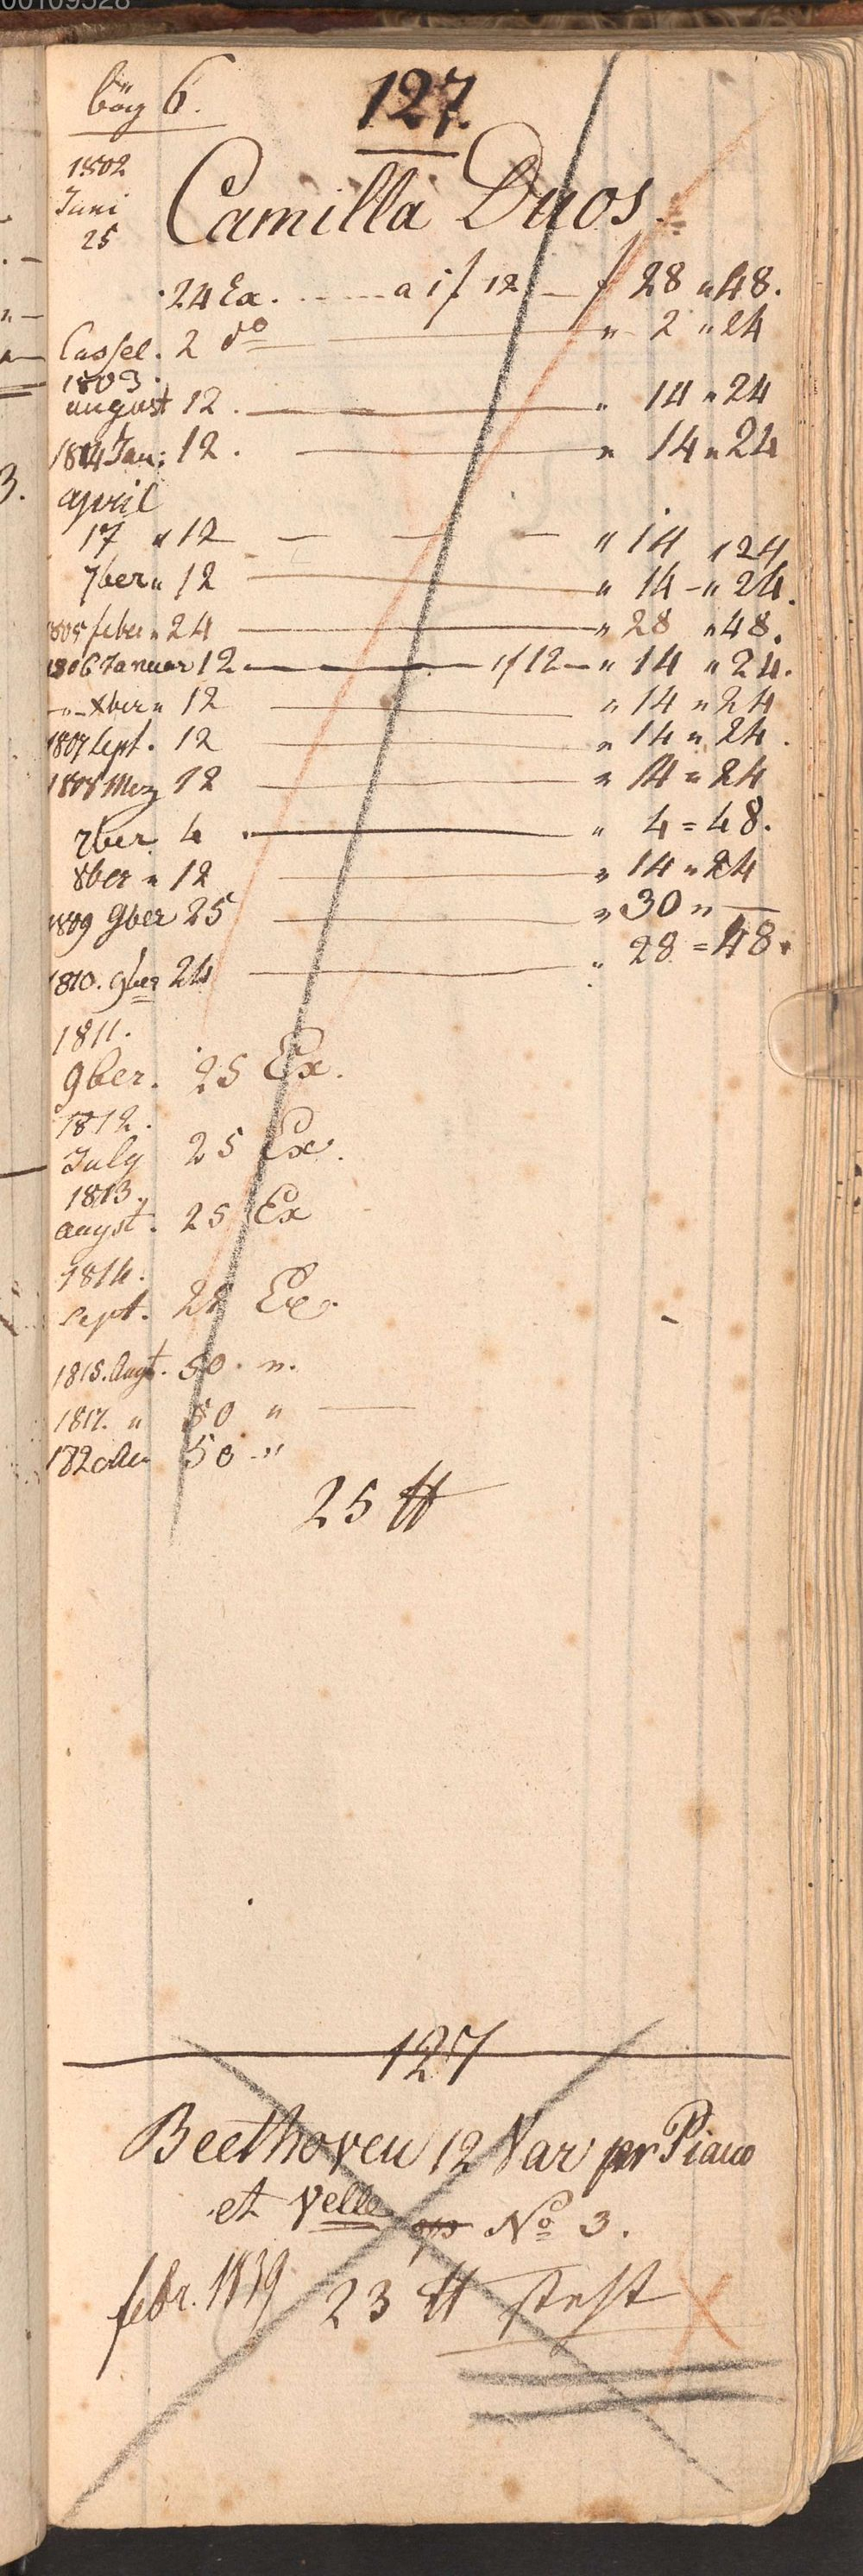 00109528
bög 6.
127.
1802
Juni
25
Camilla Duos.
24 Ex. a 1f 12 f 28 " 48.
Cassel. 2 do " 2 " 24
1803.
august 12. " 14 " 24
1804 Jan: 12. " 14 " 24
april
17 " 12 " 14 " 24
7ber " 12 " 14 " 24.
1805 feber " 24 " 28 " 48.
1806 Januar 12 1f 12 " 14 " 24.
" Xber " 12 " 14 " 24
1807 Sept. 12 " 14 " 24.
1808 Merz 12 " 14 = 24
7ber 4. " 4 = 48.
8ber " 12 " 14 " 24
1809 9ber 25 " 30 " —
1810. 9ber 24 " 28 = 48.
1811.
9ber. 25 Ex.
1812.
July 25 Ex.
1813.
augst. 25 Ex
1814.
Sept. 22 Ex.
1815. Augt. 50. ".
1817. " 50 "
1820 50 "
25 tt
127
Beethoven 12 Var per Piano
et Vclle op No 3.
febr. 1839 23 tt